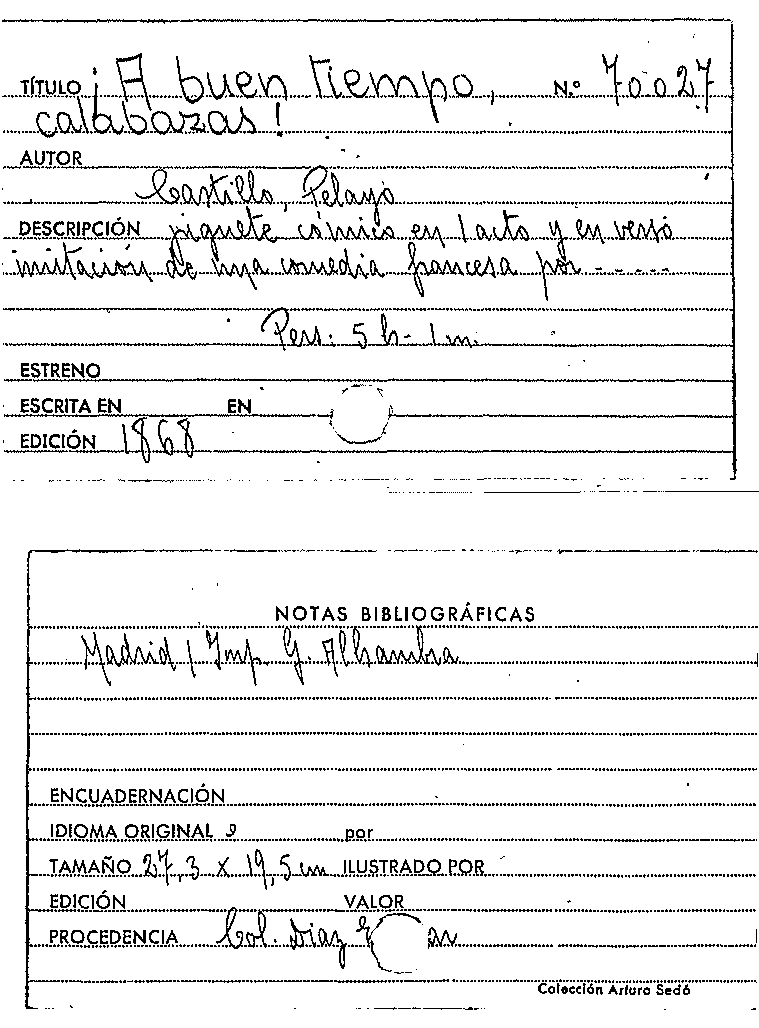 TÍTULO ¡A buen tiempo, N.º 70027
calabazas!
AUTOR
Castillo, Pelayo
DESCRIPCIÓN juguete cómico en 1 acto y en verso
imitación de una comedia francesa por -----
Pers: 5 h - 1 m.
ESTRENO
ESCRITA EN EN
EDICIÓN 1868
NOTAS BIBLIOGRÁFICAS
Madrid / Imp. G. Alhambra
ENCUADERNACIÓN
IDIOMA ORIGINAL por
TAMAÑO 27,3 x 19,5 cm ILUSTRADO POR
EDICIÓN VALOR
PROCEDENCIA Col. Díaz
Colección Arturo Sedó